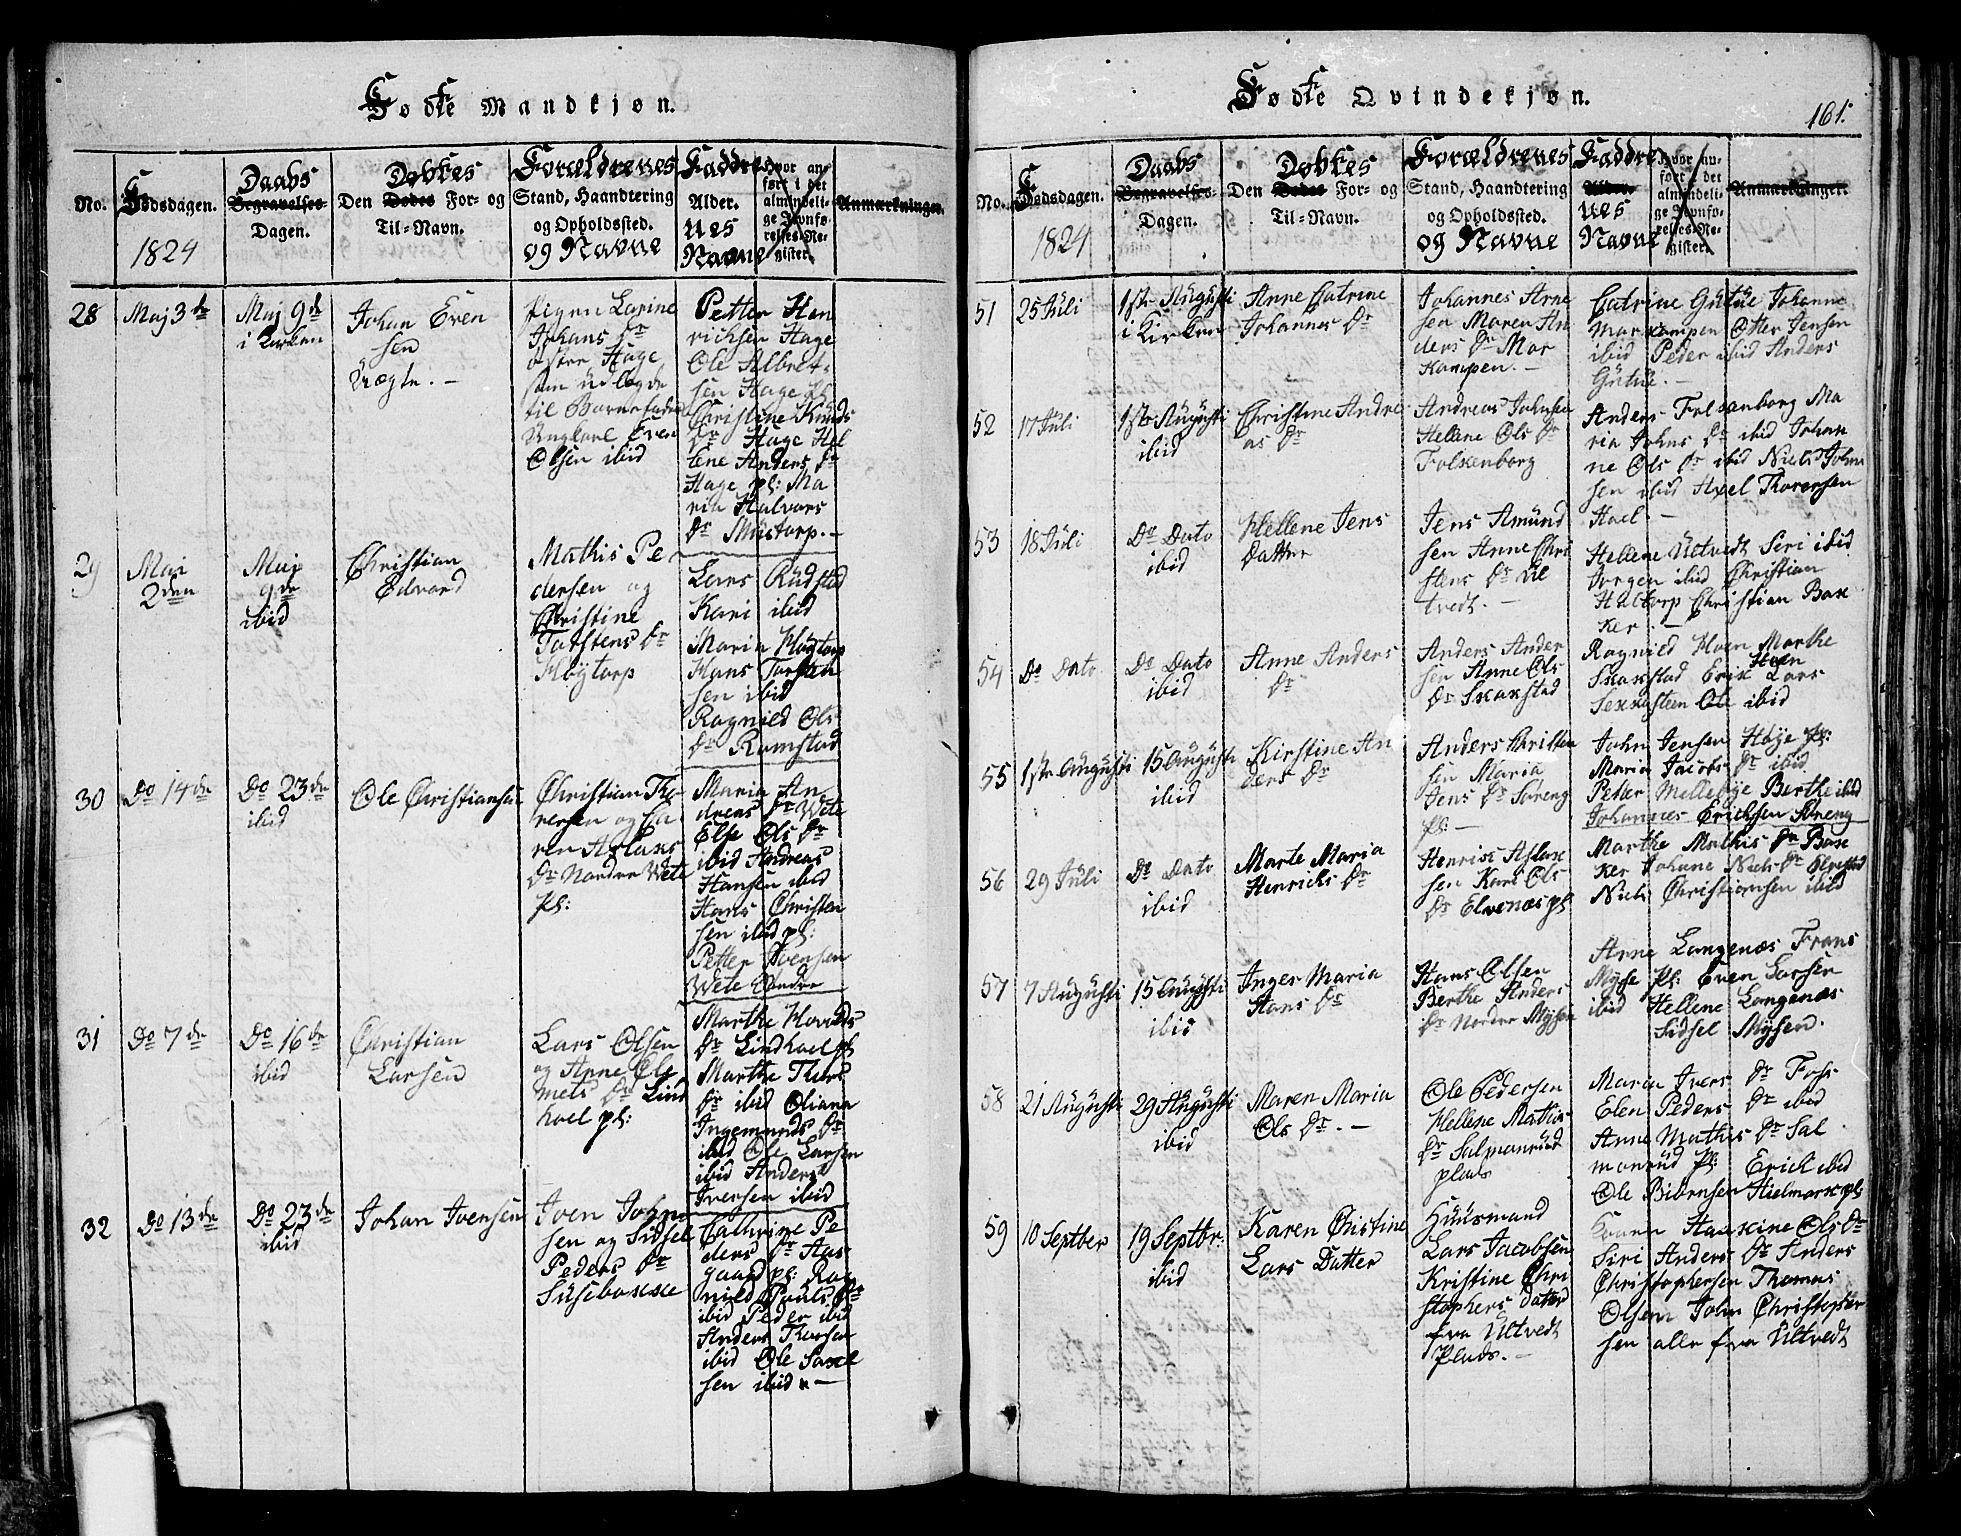 Fødte Mandkjøn.
No.
Fødsdagen.
1824
Daabs
Begravelses-
Dagen.
Døbtes
Den Dødes For- og
Til-Navn.
Forældrenes
Stand, Haandtering
og Opholdssted.
og Navne
Faddre
Alder.
nes
Navne
Hvor an-
ført i det
almindeli-
ge Jevnfø-
relses-Re-
gister.
Anmærkninger.
28
Maj 3de
Maj 9de
i Kirken
Johan Even
sen
Uægte. –
Pigen Larine
Johans Dr
østre Hage
som udlagde
til Barnefader
Ungkarl Even
Olsen ibid
Petter Hen
richsen Hage
Ole Albret-
sen Hage pl
Christine Knuds
Dr Hage Hel
lene Anders Dr
Hage pl: Ma
ria Halvors
Dr Mustorp. –
29
Maji
2den
Maji
9de
ibid
Christian
Edvard
Mathis Pe
dersen og
Christine
Torstens Dr
Høytorp
Lars Rudstad
Kari ibid
Maria Høytorp
Hans Torsten
sen ibid
Ragnild Ols
Dr Ramstad
30
Do 14de
Do 23de
ibid
Ole Christiansen
Christian Tho-
resen og Ka
ren Aslaks
Dr Nordre Wete
pl:
Maria An
drens Dr Wete
Else Ols Dr
ibid Andreas
Hansen ibid
Hans Christen
sen ibid pl:
Petter Ivensen
Wete Søndre
31
Do 7de
Do 16de
ibid
Christian
Larsen
Lars Olsen
og Anne Cle
mets Dr Lind
hoel pl:
Marthe Hovalds
Dr Lindhoel pl
Marthe Thors
Dr ibid Oliana
Ingemunds Dr
ibid Ole Larsen
ibid Anders
Iversen ibid
32
Do 13de
Do 23de
ibid
Johan Ivensen
Iven John
sen og Sidsel
Peders Dr
Susebakke
Cathrine Pe
ders Dr Has
gaard pl: Rag
nild Pouls Dr
ibid Peder ibid
Anders Thorsen
ibid Ole Saxel
sen ibid –
Fødte Qvindekjøn.
161.
No.
Fødsdagen.
1824
Daabs
Begravelses-
Dagen.
Døbtes
Den Dødes For- og
Til-Navn.
Forældrenes
Stand, Haandtering
og Opholdssted.
og Navne
Faddre
Alder.
nes
Navne
Hvor an-
ført i det
almindeli-
ge Jevnfø-
relses-Re-
gister.
Anmærkninger.
51
25 Juli
1ste Augusti
i Kirken
Anne Catrine
Johannes Dr
Johannes Arne
sen Maren An
ders Dr Mor
kampen. –
Catrine Gutue Johanne
Morkampen Otter Jensen
ibid Peder ibid Anders
Gutue. –
52
17 Juli
1ste Augusti
ibid
Christine Andre
as Dr
Andreas Johnsen
Hellene Ols Dr
Folkenborg
Anders Folkenborg Ma
ria Johns Dr ibid Johan
ne Ols Dr ibid Niels John
sen ibid Axel Thoresen
Hoel. –
53
18 Juli
Do Dato
ibid
Hellene Jens
Datter
Jens Amund
sen Anne Chri
stens Dr Ul
tvedt. –
Hellene Ultvedt Siri ibid
Jorgen ibid Christian
Haltorp Christian Bak
ker. –
54
Do Dato
Do Dato
ibid
Anne Anders
Dr
Anders Ander
sen Anne Ols
Dr Skakstad
Ragnild Hoen Marthe
Skakstad Erik Hoen Lars
Sekkesteen Ole ibid
55
1ste Augusti
15 Augusti
ibid
Kirstine An
ders Dr
Anders Christen
sen Maria
Jens Dr Søreng
pl: –
John Jensen Høje pl:
Maria Jacobs Dr ibid
Peder Melleby Berthe ibid
Johannes Ericksen Søreng
56
29 Juli
Do Dato
ibid
Marte Maria
Henricks Dr
Henrik Aslak
sen Kari Ols
Dr Elvenæs pl
Marthe Mathis Dr Bak
ker Johane Niels Dr
Niels Christiansen ibid
57
7 Augusti
15 Augusti
ibid
Inger Maria
Hans Dr
Hans Olsen
Berthe Anders
Dr Nordre Mysen
Anne Langenæs Frans
Mysse pl: Even Larsen
ibid Hellene Langenæs
Sidsel Mysen.
58
21 Augusti
29 Augusti
ibid
Maren Maria
Ols Dr. –
Ole Pedersen
Hellene Mathis
Dr Salmonrud
plads
Maria Ivers Dr Foss
Elen Peders Dr ibid
Anne Mathis Dr Sal
monrud pl: Erick ibid
Ole Biørnsen Hielmark pl:
59
10 Septber
19 Septbr:
ibid
Karen Christine
Lars Datter
Huusmand
Lars Jacobsen
Kristine Chri
stophers Dater
fra Ultvedt
Plads. –
Karen Haakine Ols Dr
Siri Anders Dr Anders
Christophersen Thomas
Olsen John Christopher
sen alle fra Ultvedt